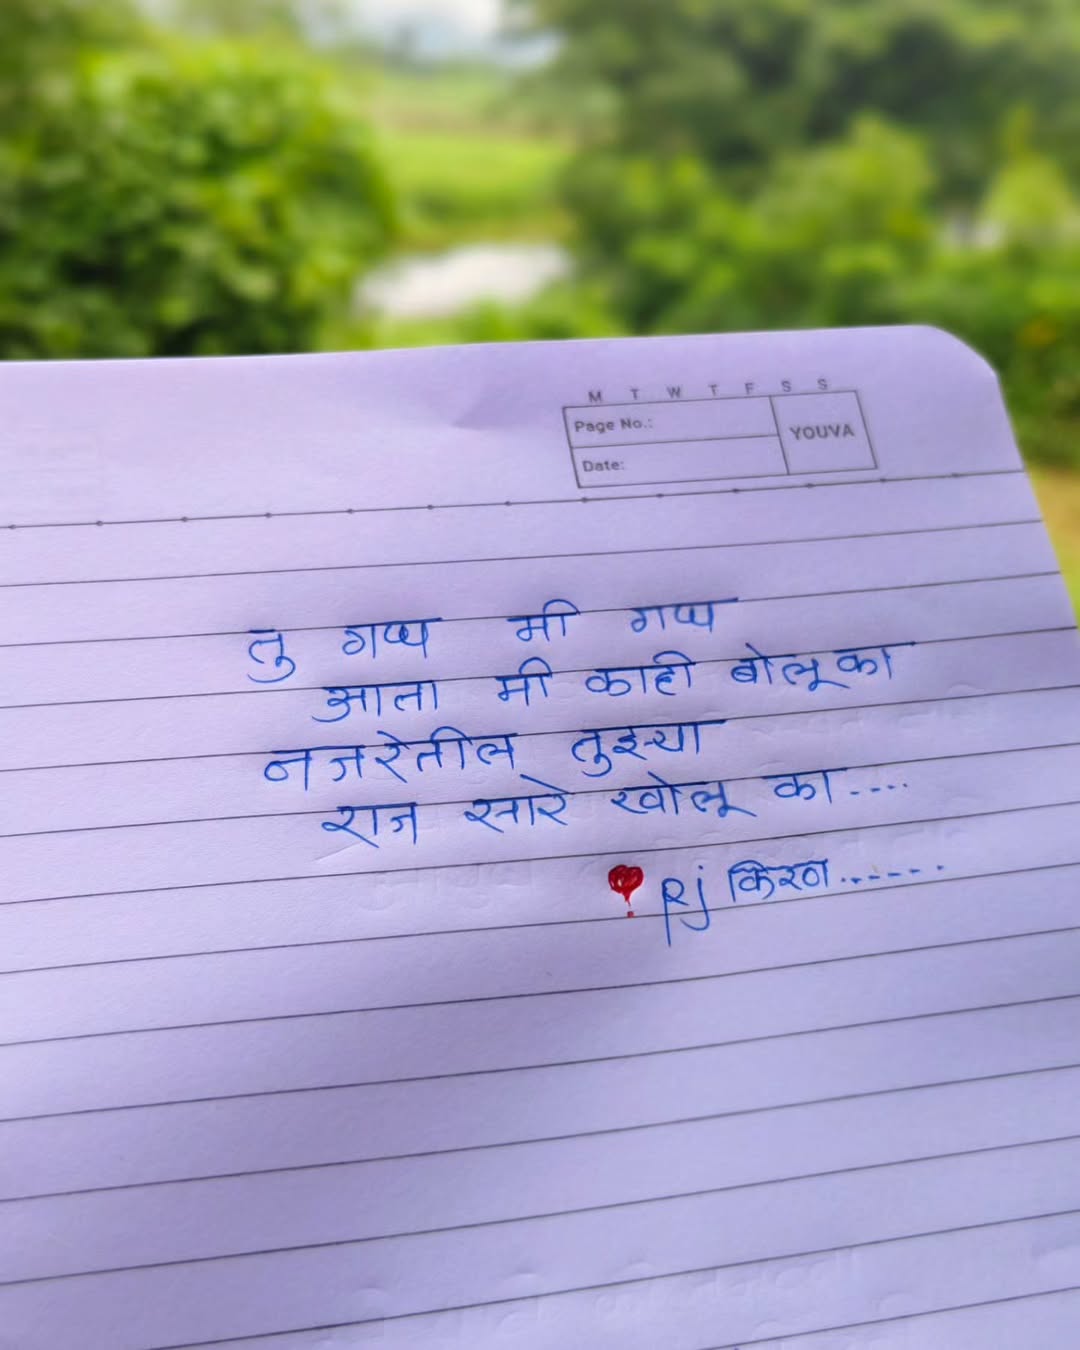 M T W T F S S
Page No.:
YOUVA
Date:
तु गप्प मी गप्प
आता मी काही बोलू का
नजरेतील तुझ्या
राज सारे खोलू का....
Rj किरण......